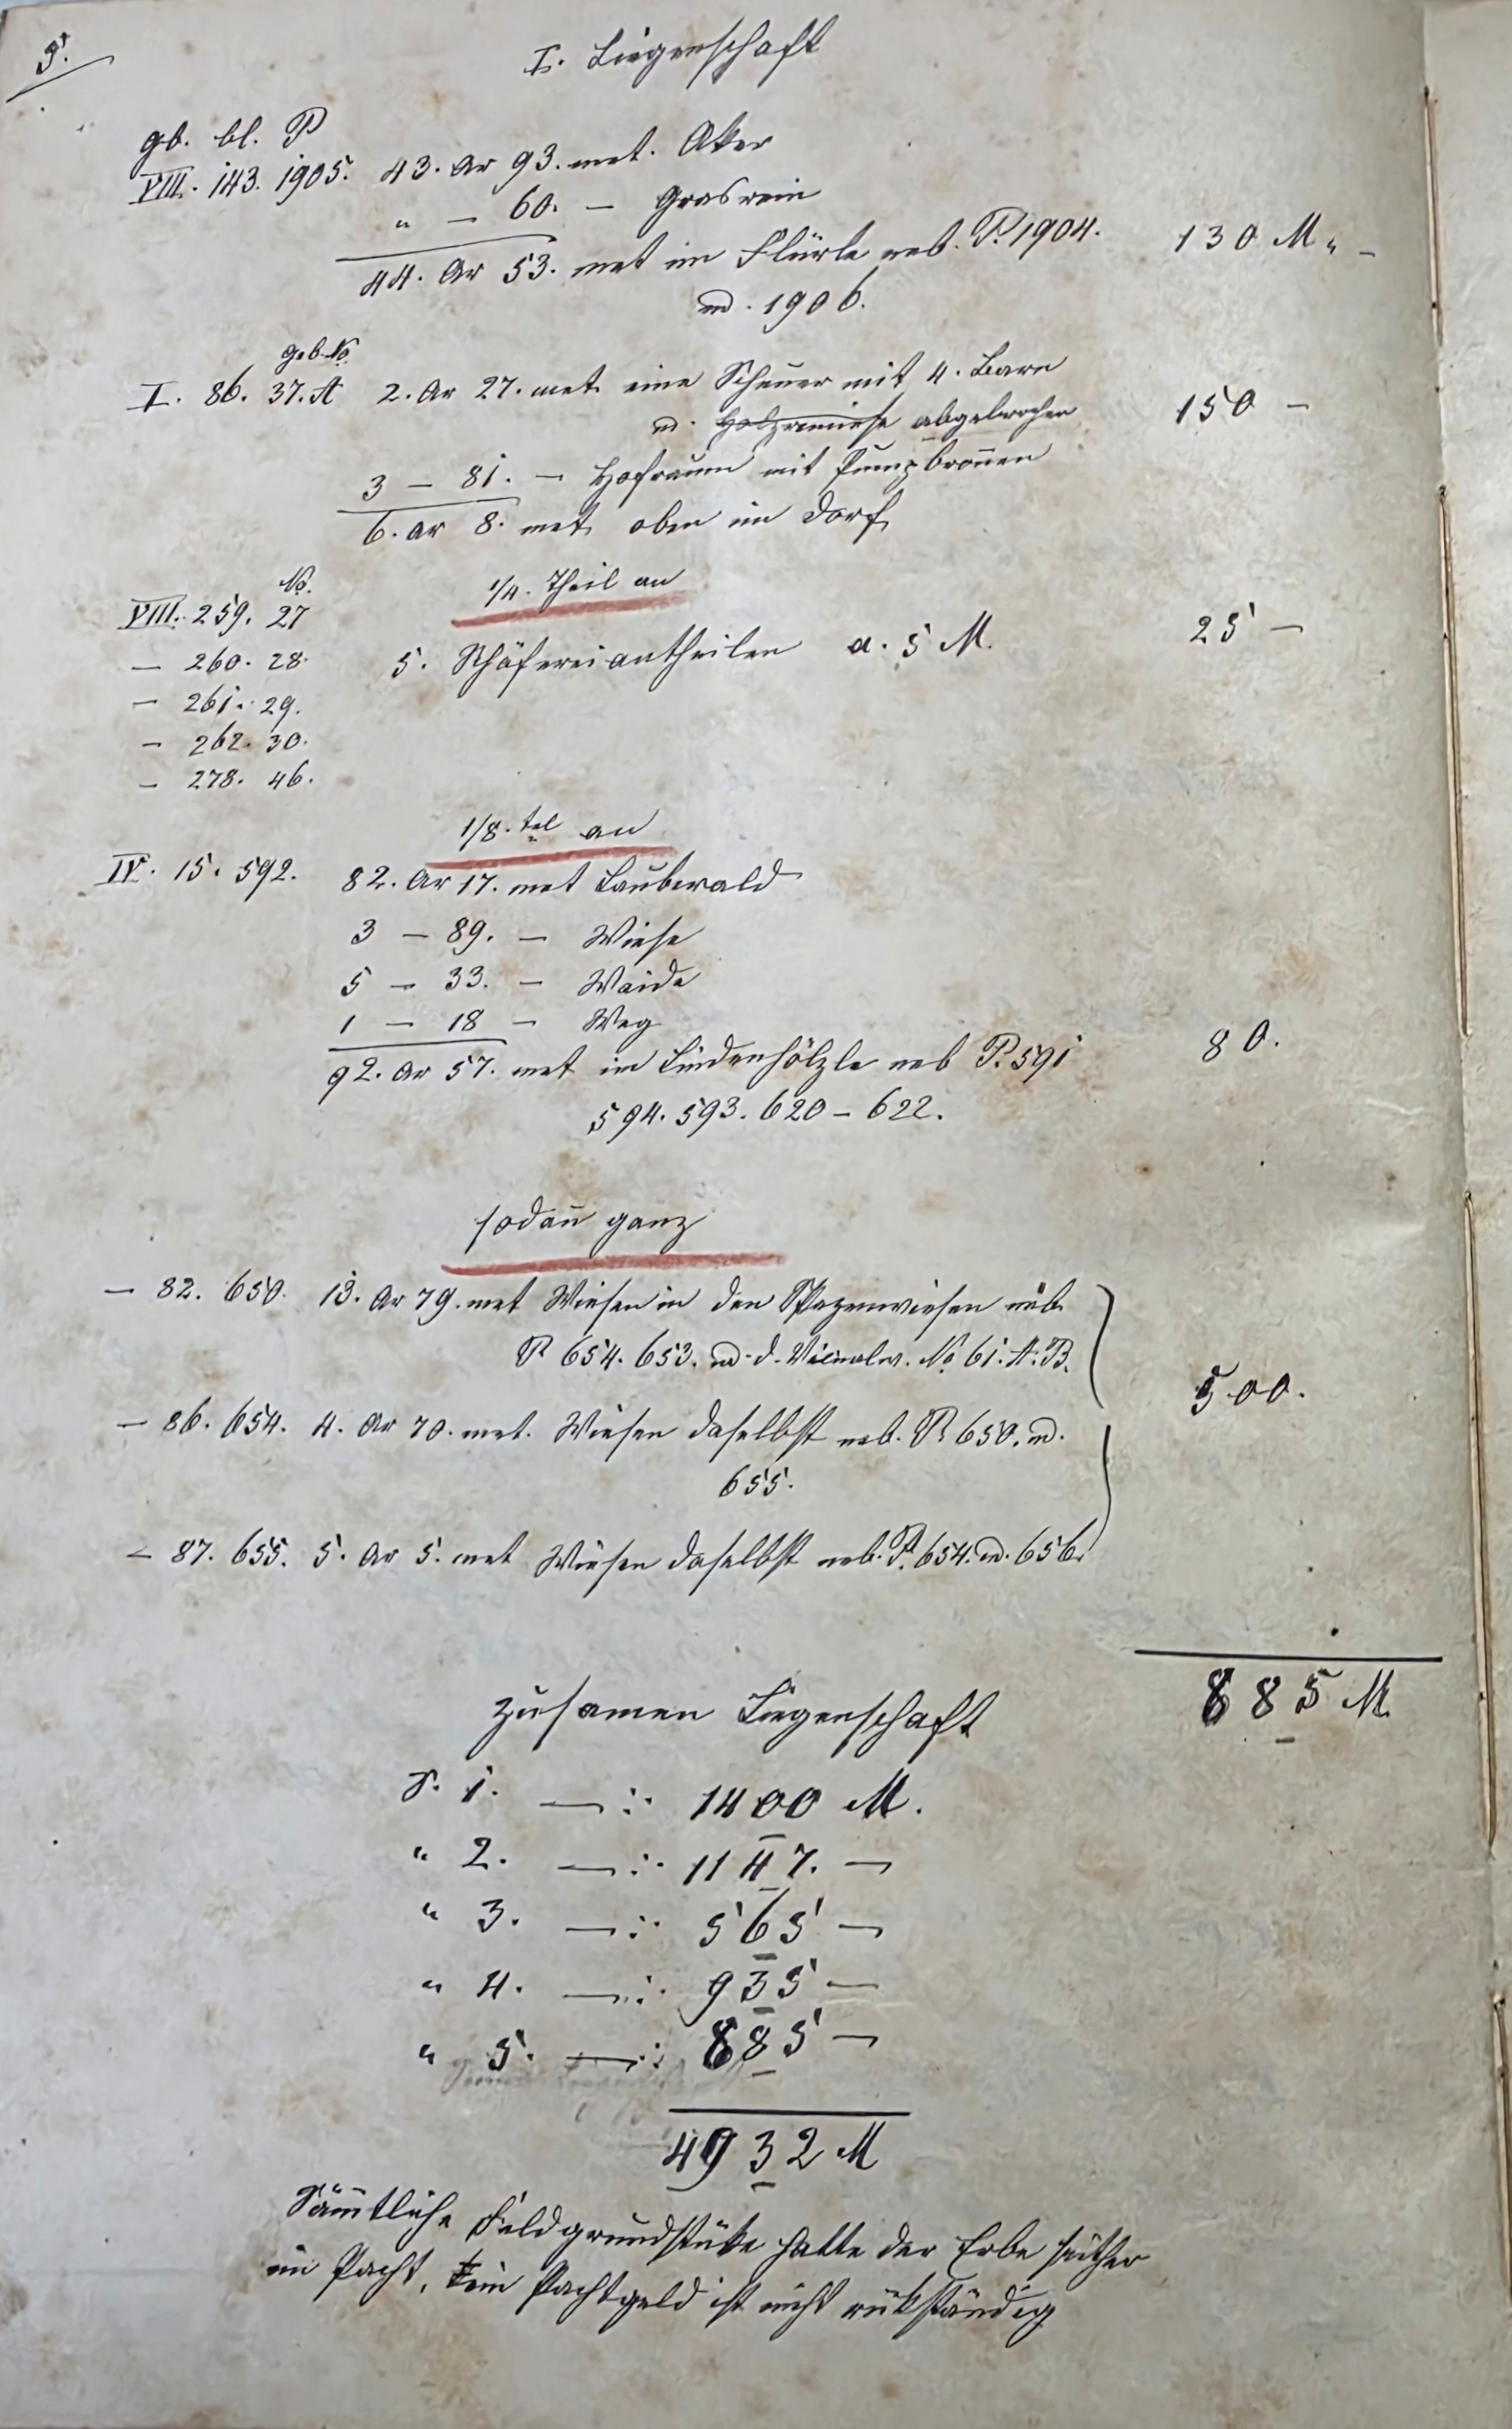 5.
I. Liegenschaft
gb. bl. P
VIII. 143. 1905. 43. Ar 93. met. Aker
" — 60. — Grasrain
44. Ar 53. met im Flürle neb. P. 1904. 130 M " —
u. 1906.
geb. No
I. 86. 37. A 2. Ar 27. met eine Scheuer mit 4. Barn
u. Holzremiese abgebrochen 150 —
3 — 81. — Hofraum mit Pumpbronnen
6. Ar 8. met oben im Dorf
No. 1/4. Theil an
VIII. 259. 27
— 260. 28. 5. Schäfereiantheilen a. 5 M. 25 —
— 261. 29.
— 262. 30.
— 278. 46.
1/8. tel an
IV. 15. 592. 82. Ar 17. met Laubwald
3 — 89. — Wiese
5 — 33. — Waide
1 — 18 — Weg
92. Ar 57. met im Lindenhölzle neb P. 591 80.
594. 593. 620 — 622.
sodan̄ ganz
— 82. 650. 13. Ar 79. met Wiesen in den Spazenwiesen neb.
P 654. 653. u. d. Vicinalw. No 61. A. B.
500.
— 86. 654. 4. Ar 70. met. Wiesen daselbst neb. P. 650. u.
655.
— 87. 655. 5. Ar 5. met Wiesen daselbst neb. P. 654. u. 656.
885 M
Zusamen Liegenschaft
S. 1. —:: 1400 M.
" 2. —:: 1147. —
" 3. —:: 565 —
" 4. —:: 935 —
" 5. —:: 885 —
4932 M
Säm̄tliche Feldgrundstüke hatte der Erbe seither
im Pacht, ein Pachtgeld ist nicht rükständig